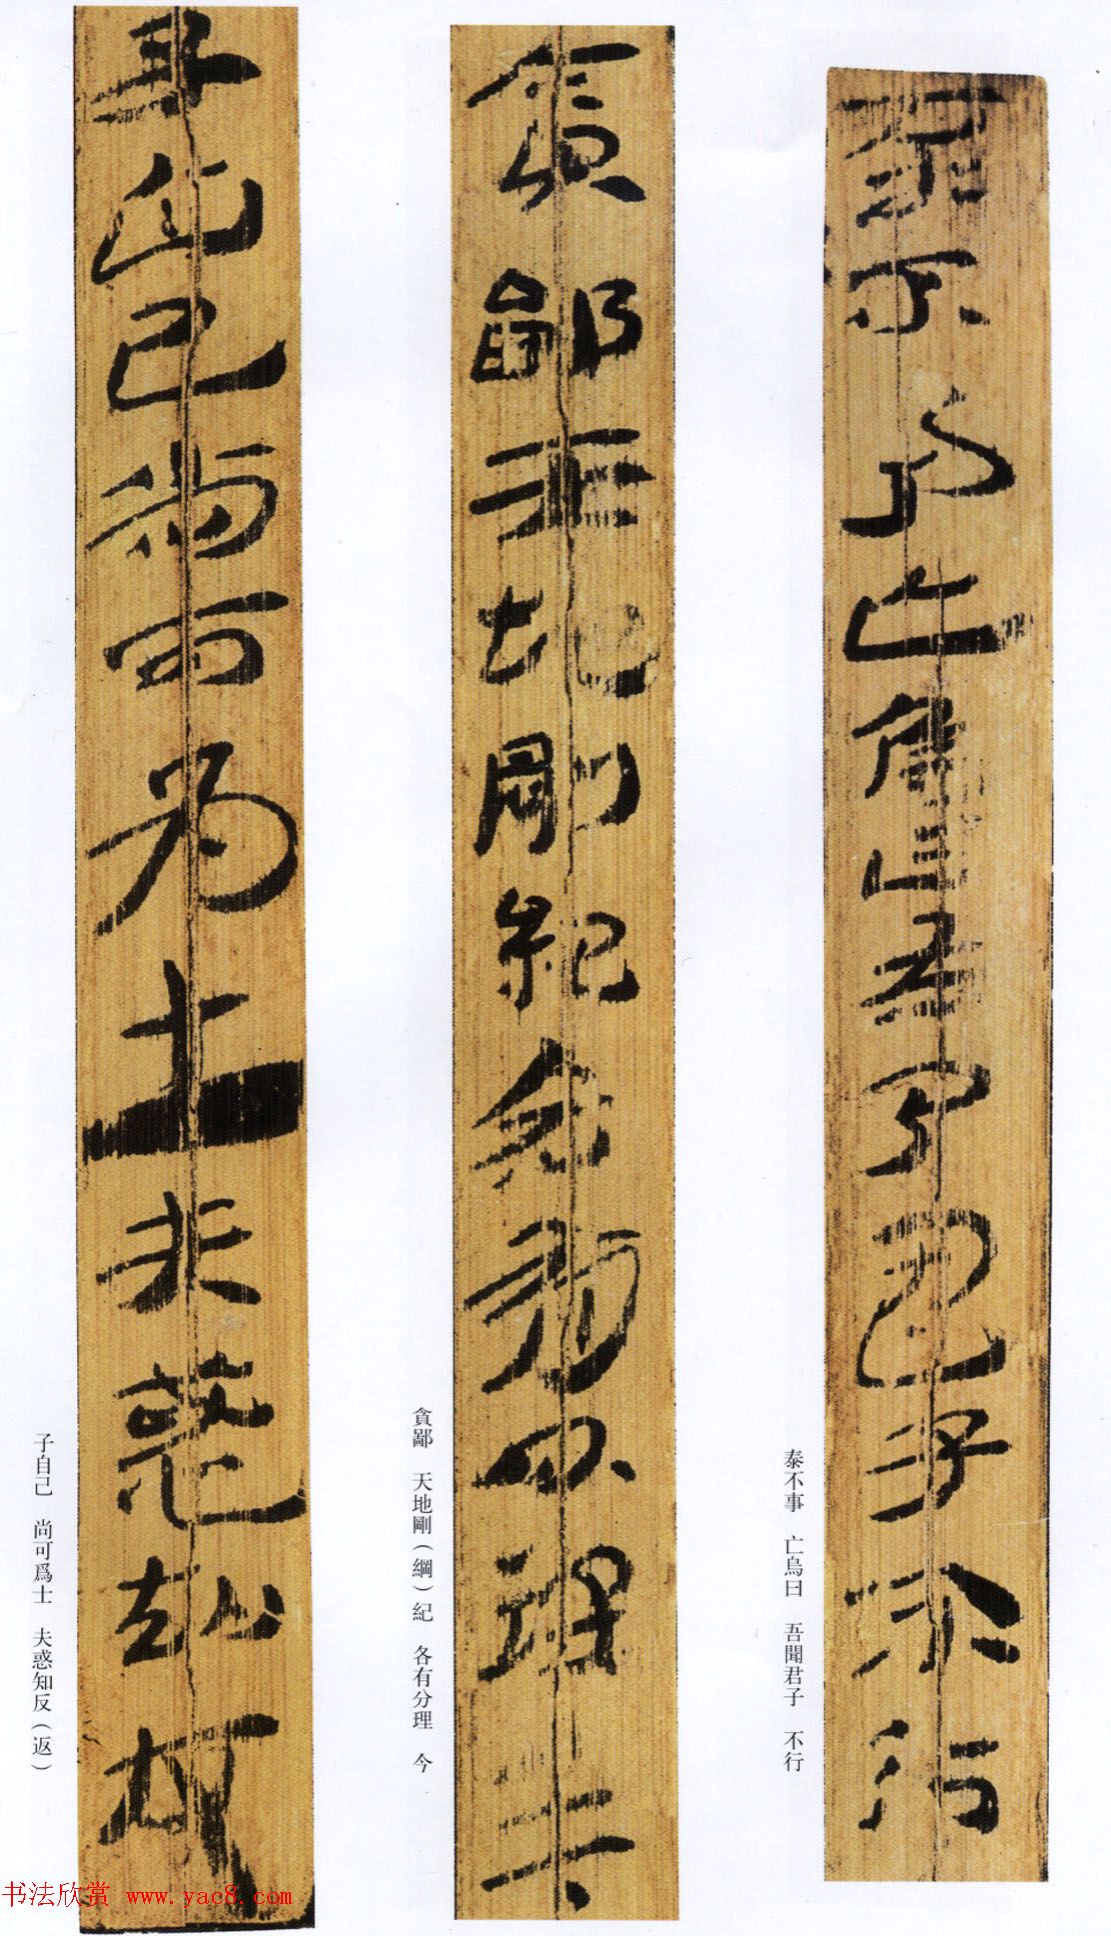 泰不事　亡烏曰　吾聞君子　不行
貪鄙　天地剛（綱）紀　各有分理　今
子自己　尚可爲士　夫惑知反（返）
书法欣赏 www.yac8.com